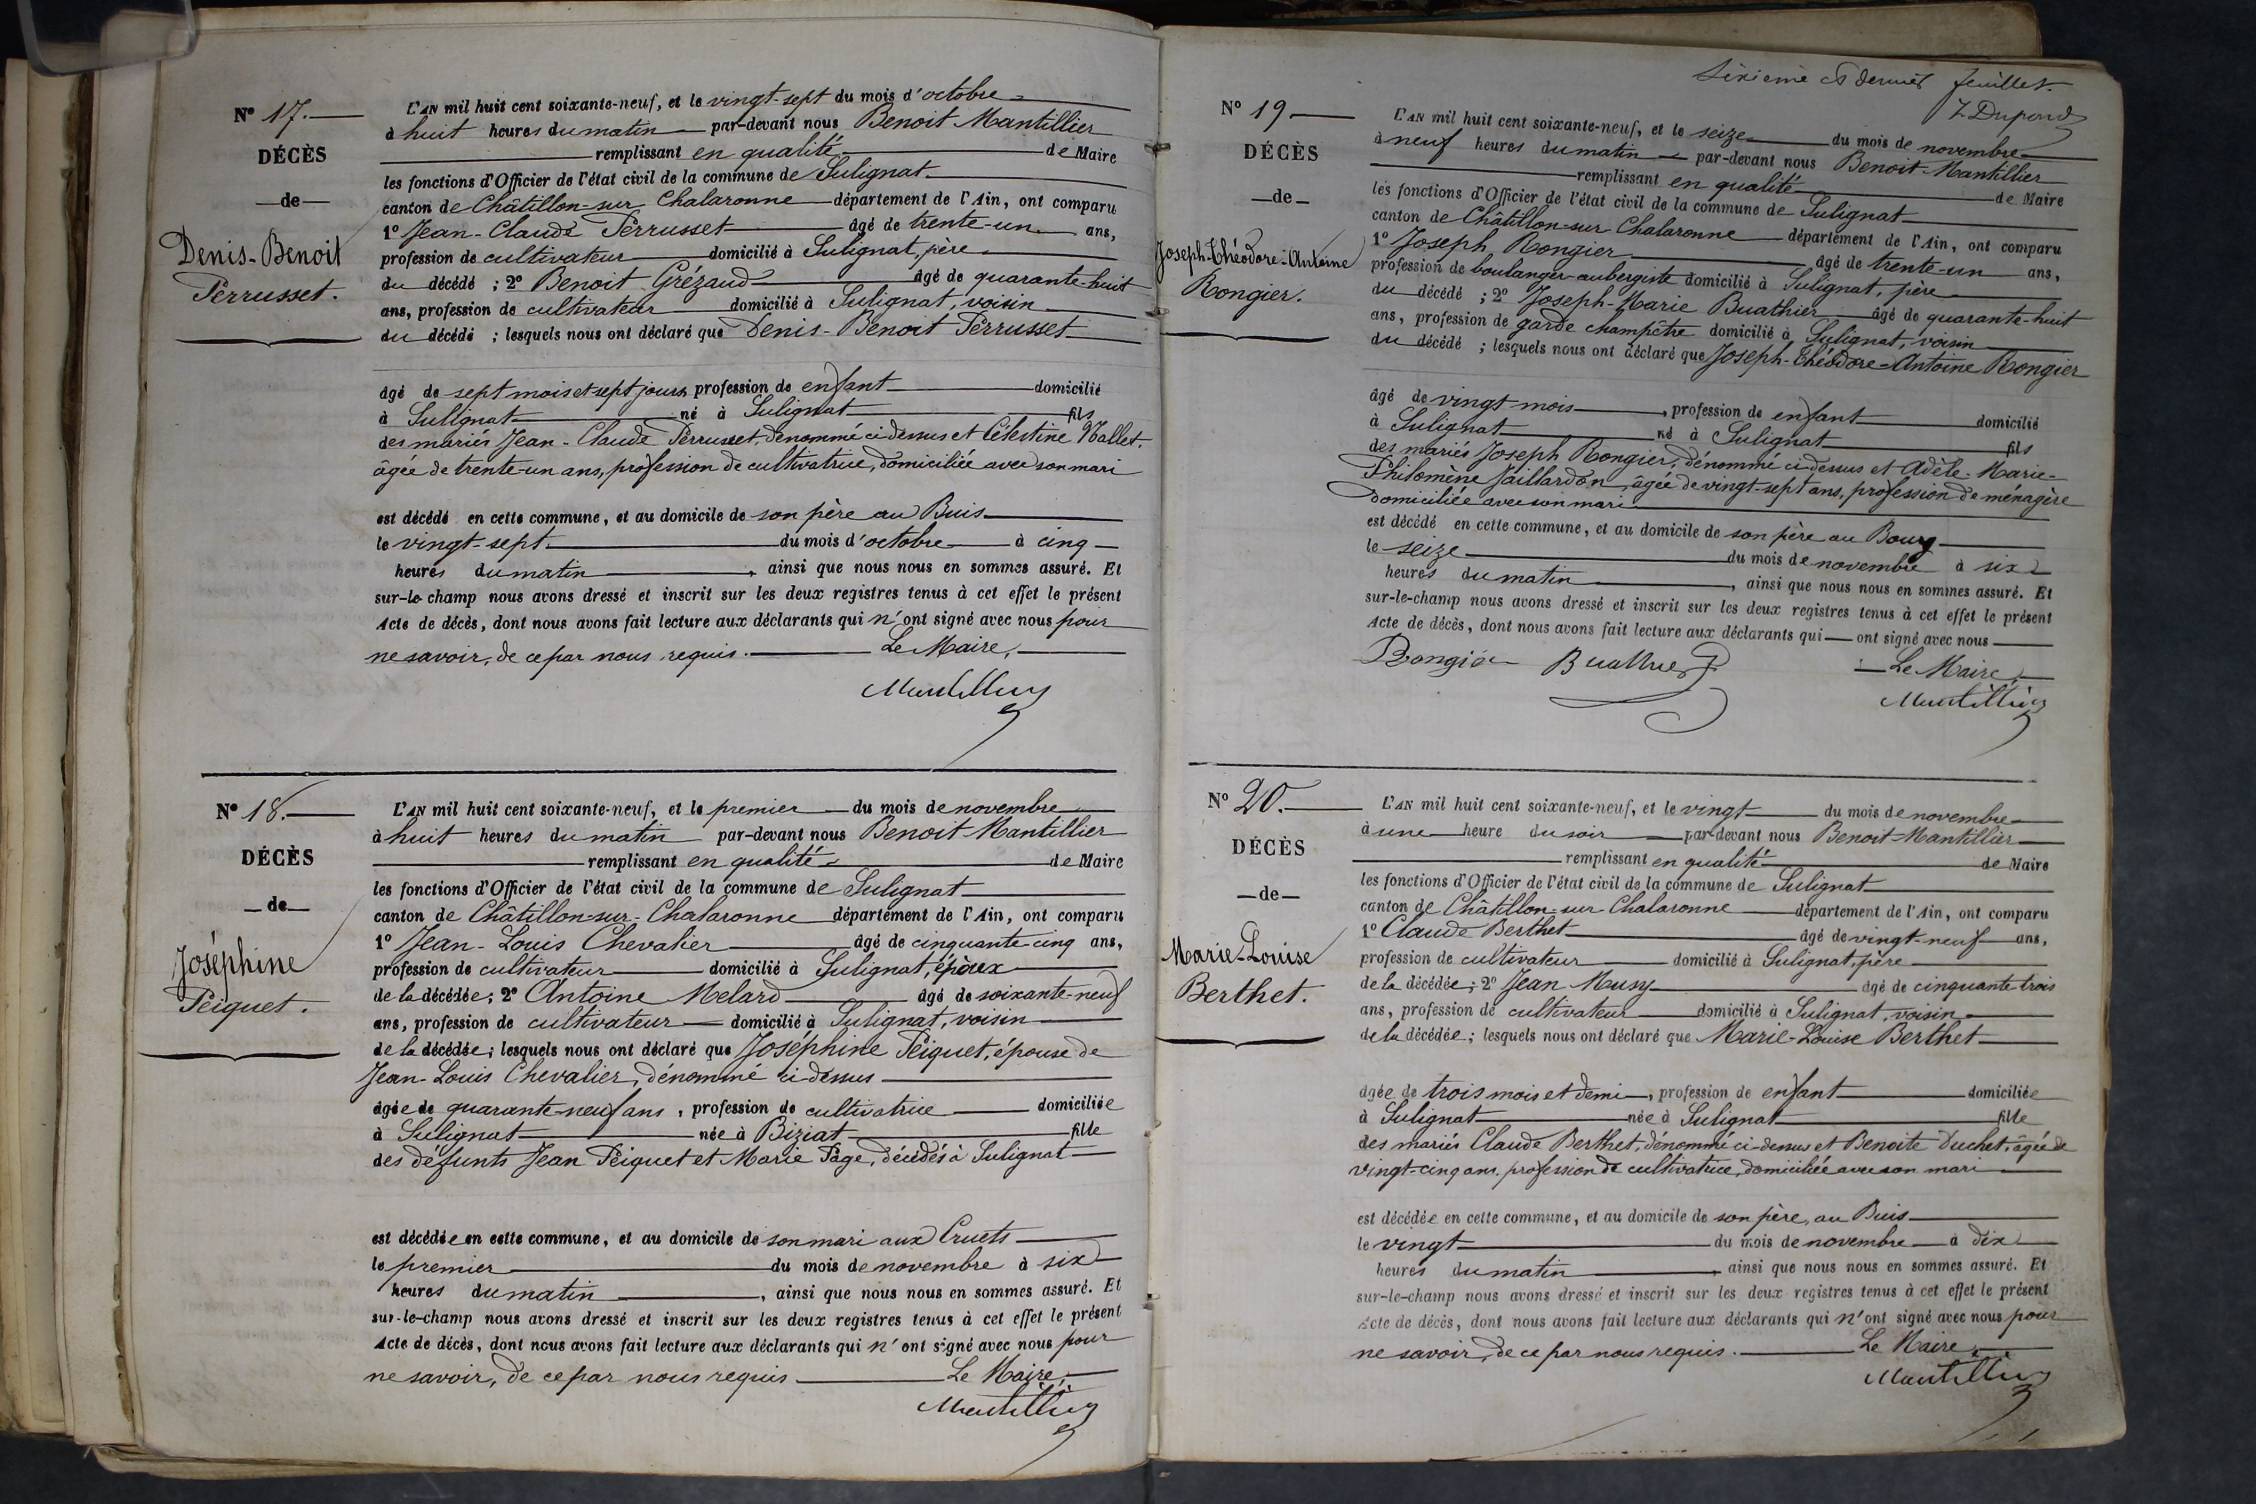 N° 17.
DÉCÈS
de
Denis-Benoit
Perrusset.
L'AN mil huit cent soixante-neuf, et le vingt-sept du mois d'octobre
à huit heures du matin par-devant nous Benoit Mantillier
remplissant en qualité de Maire
les fonctions d'Officier de l'état civil de la commune de Sulignat
canton de Châtillon-sur-Chalaronne département de l'Ain, ont comparu
1° Jean-Claude Perrusset âgé de trente-un ans,
profession de cultivateur domicilié à Sulignat, père
du décédé ; 2° Benoit Grézaud âgé de quarante-huit
ans, profession de cultivateur domicilié à Sulignat, voisin
du décédé ; lesquels nous ont déclaré que Denis-Benoit Perrusset
âgé de sept mois et sept jours profession de enfant domicilié
à Sulignat né à Sulignat fils
des mariés Jean-Claude Perrusset, dénommé ci-dessus et Célestine Nallet.
âgée de trente-un ans, profession de cultivatrice, domiciliée avec son mari
est décédé en cette commune, et au domicile de son père au Buis
le vingt-sept du mois d'octobre à cinq
heures du matin, ainsi que nous nous en sommes assuré. Et
sur-le-champ nous avons dressé et inscrit sur les deux registres tenus à cet effet le présent
Acte de décès, dont nous avons fait lecture aux déclarants qui n'ont signé avec nous pour
ne savoir, de ce par nous requis. Le Maire,
Mantillier
N° 18.
DÉCÈS
de
Joséphine
Peiquet.
L'AN mil huit cent soixante-neuf, et le premier du mois de novembre
à huit heures du matin par-devant nous Benoit Mantillier
remplissant en qualité de Maire
les fonctions d'Officier de l'état civil de la commune de Sulignat
canton de Châtillon-sur-Chalaronne département de l'Ain, ont comparu
1° Jean-Louis Chevalier âgé de cinquante-cinq ans,
profession de cultivateur domicilié à Sulignat, époux
de la décédée ; 2° Antoine Melard âgé de soixante-neuf
ans, profession de cultivateur domicilié à Sulignat, voisin
de la décédée ; lesquels nous ont déclaré que Joséphine Peiquet, épouse de
Jean-Louis Chevalier, dénommé ci-dessus
âgée de quarante-neuf ans, profession de cultivatrice domiciliée
à Sulignat née à Biziat fille
des défunts Jean Peiquet et Marie Page, décédés à Sulignat
est décédée en cette commune, et au domicile de son mari aux Cruets
le premier du mois de novembre à six
heures du matin, ainsi que nous nous en sommes assuré. Et
sur-le-champ nous avons dressé et inscrit sur les deux registres tenus à cet effet le présent
Acte de décès, dont nous avons fait lecture aux déclarants qui n'ont signé avec nous pour
ne savoir, de ce par nous requis Le Maire,
Mantillier
Sixième et dernier feuillet.
Dupond
N° 19
DÉCÈS
de
Joseph-Théodore-Antoine
Rongier.
L'AN mil huit cent soixante-neuf, et le seize du mois de novembre
à neuf heures du matin par-devant nous Benoit Mantillier
remplissant en qualité de Maire
les fonctions d'Officier de l'état civil de la commune de Sulignat
canton de Châtillon-sur-Chalaronne département de l'Ain, ont comparu
1° Joseph Rongier âgé de trente-un ans,
profession de boulanger-aubergiste domicilié à Sulignat, père
du décédé ; 2° Joseph-Marie Buathier âgé de quarante-huit
ans, profession de garde champêtre domicilié à Sulignat, voisin
du décédé ; lesquels nous ont déclaré que Joseph-Théodore-Antoine Rongier
âgé de vingt mois, profession de enfant domicilié
à Sulignat né à Sulignat fils
des mariés Joseph Rongier, dénommé ci-dessus et Adèle-Marie-
Philomène Jaillardon, agée de vingt-sept ans, profession de ménagère
domiciliée avec son mari
est décédé en cette commune, et au domicile de son père au Bourg
le seize du mois de novembre à six
heures du matin, ainsi que nous nous en sommes assuré. Et
sur-le-champ nous avons dressé et inscrit sur les deux registres tenus à cet effet le présent
Acte de décès, dont nous avons fait lecture aux déclarants qui ont signé avec nous
Rongier Buathier Le Maire,
Mantillier
N° 20.
DÉCÈS
de
Marie-Louise
Berthet.
L'AN mil huit cent soixante-neuf, et le vingt du mois de novembre
à une heure du soir par-devant nous Benoit Mantillier
remplissant en qualité de Maire
les fonctions d'Officier de l'état civil de la commune de Sulignat
canton de Châtillon-sur-Chalaronne département de l'Ain, ont comparu
1° Claude Berthet âgé de vingt-neuf ans,
profession de cultivateur domicilié à Sulignat, père
de la décédée ; 2° Jean Musy âgé de cinquante-trois
ans, profession de cultivateur domicilié à Sulignat, voisin
de la décédée ; lesquels nous ont déclaré que Marie-Louise Berthet
âgée de trois mois et demi, profession de enfant domiciliée
à Sulignat née à Sulignat fille
des mariés Claude Berthet, dénommé ci-dessus et Benoite Duchet, âgée de
vingt-cinq ans, profession de cultivatrice, domiciliée avec son mari
est décédée en cette commune, et au domicile de son père, au Buis
le vingt du mois de novembre à dix
heures du matin, ainsi que nous nous en sommes assuré. Et
sur-le-champ nous avons dressé et inscrit sur les deux registres tenus à cet effet le présent
Acte de décès, dont nous avons fait lecture aux déclarants qui n'ont signé avec nous pour
ne savoir, de ce par nous requis. Le Maire,
Mantillier